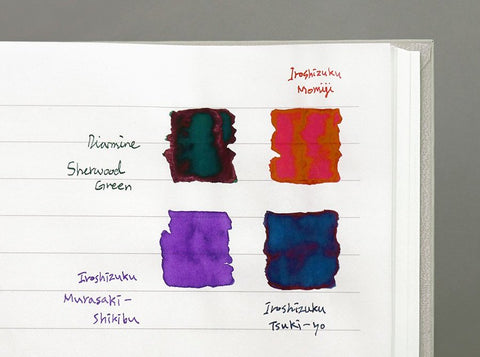 Iroshizuku
Momiji
Diamine
Sherwood
Green
Iroshizuku
Murasaki-
Shikibu
Iroshizuku
Tsuki-yo